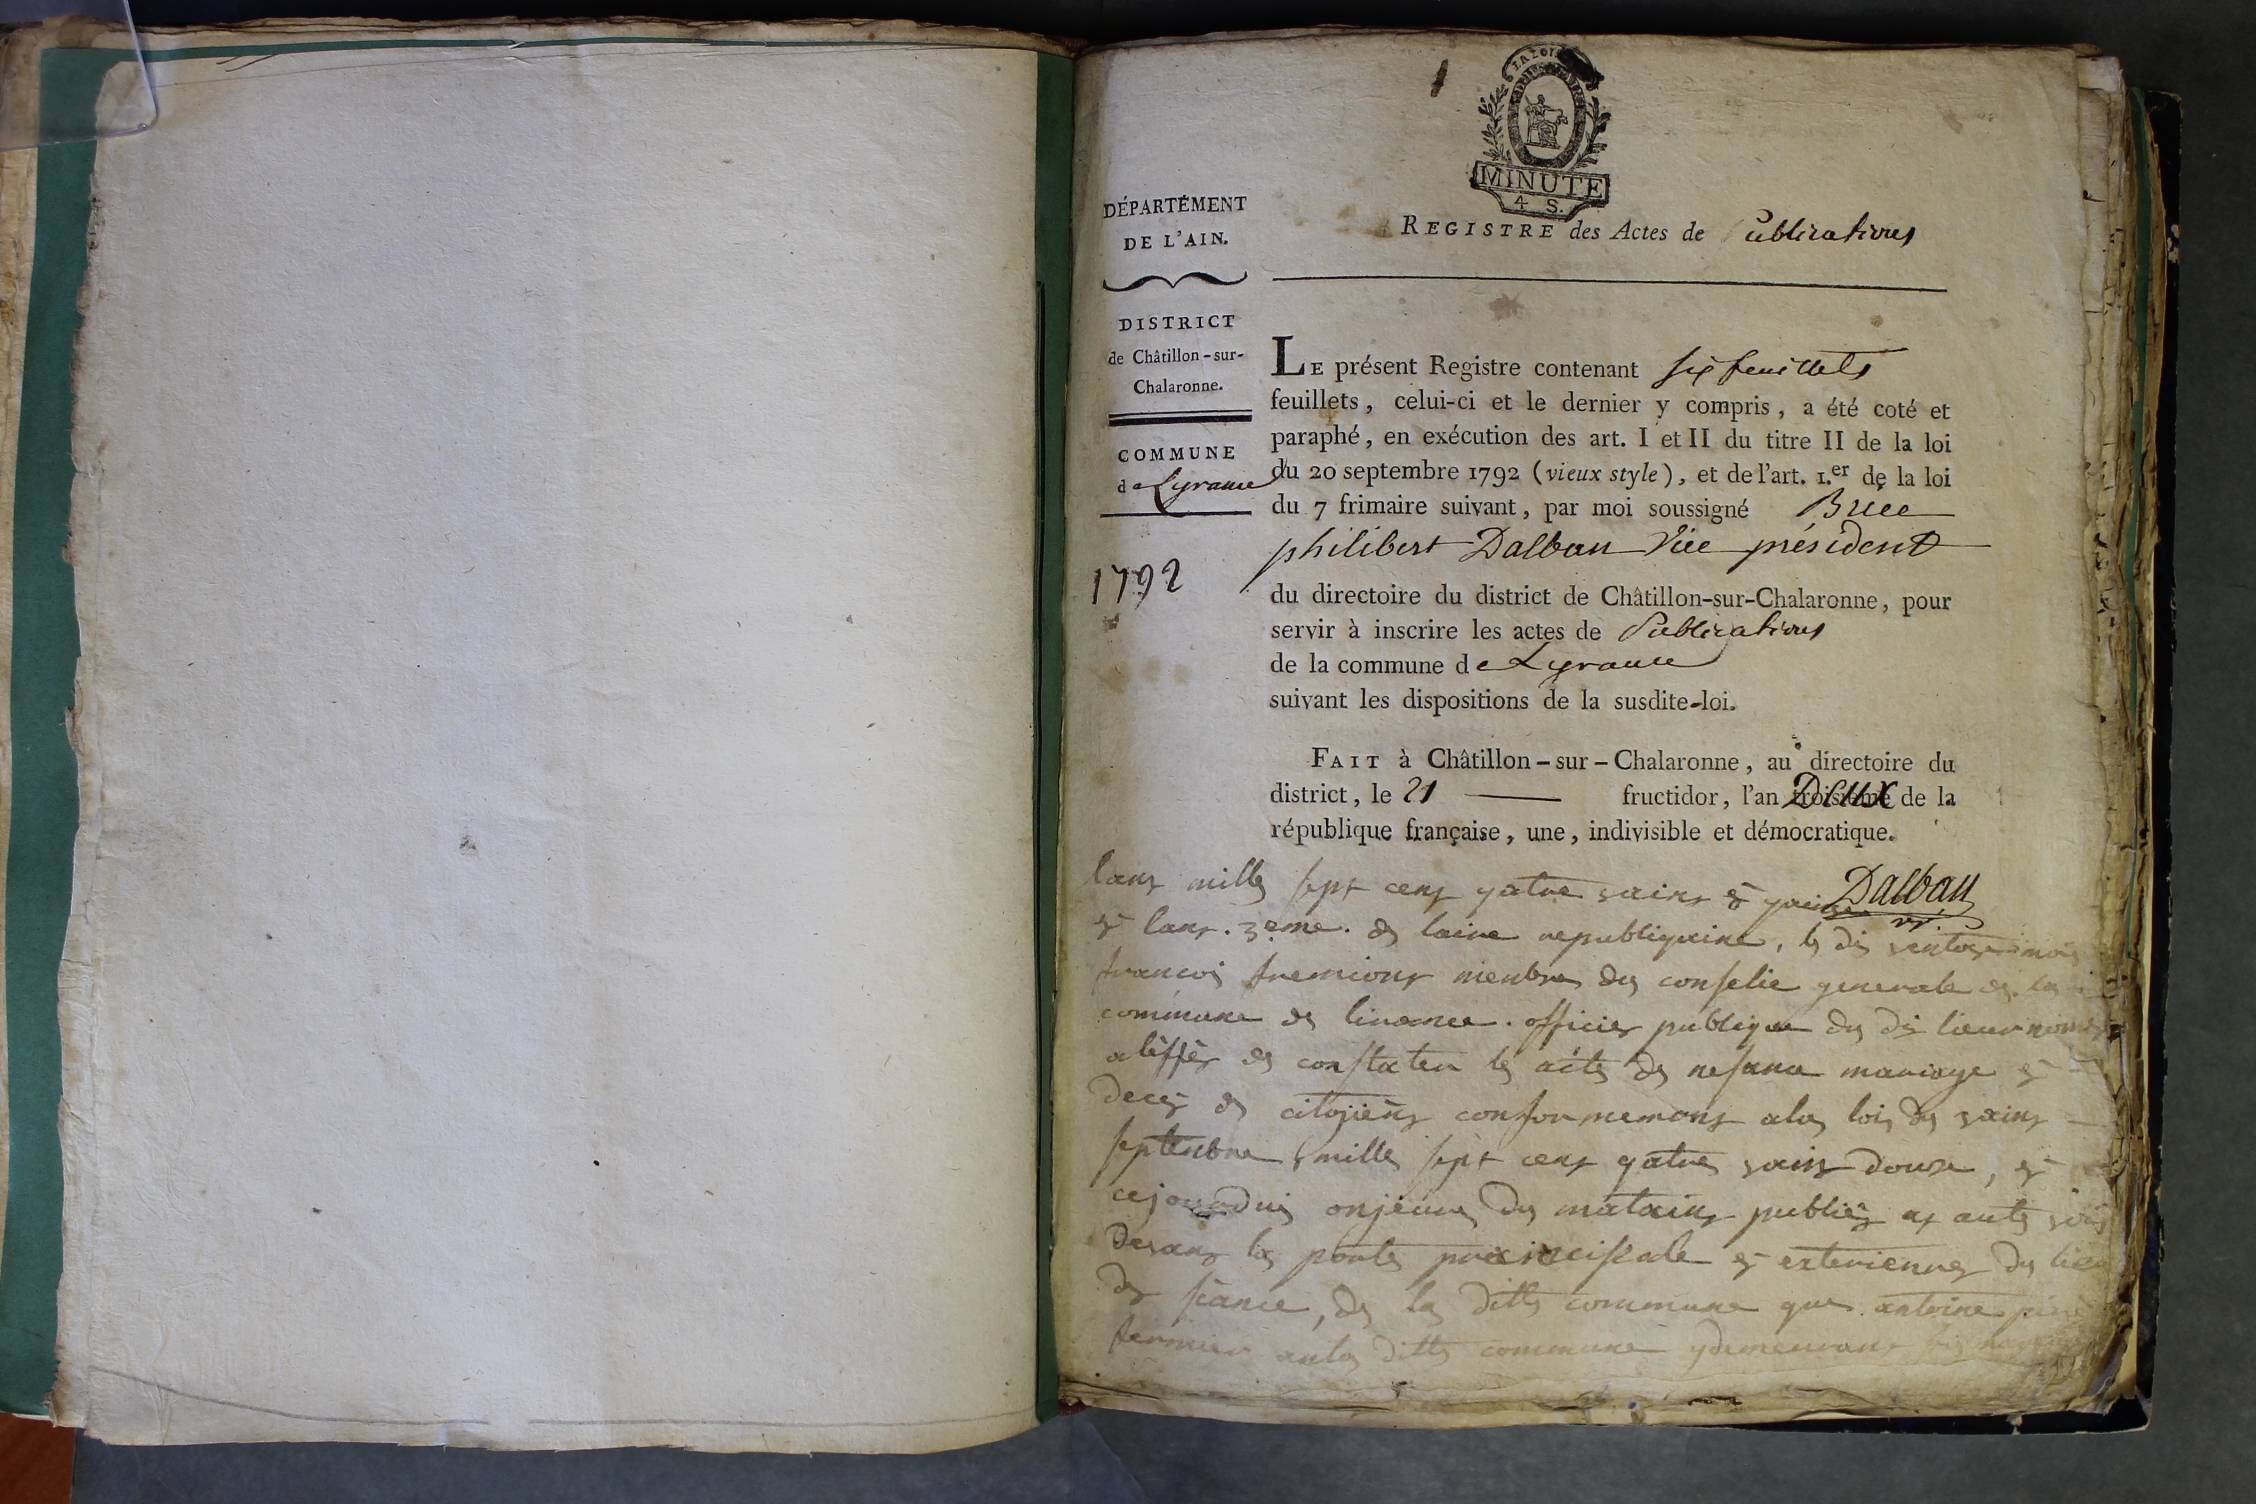 LA LOI
MINUTE
4 S.
DÉPARTEMENT
DE L'AIN.
DISTRICT
de Châtillon-sur-
Chalaronne.
COMMUNE
de Lyrance
1792
REGISTRE des Actes de Publications
LE présent Registre contenant six feuillets
feuillets, celui-ci et le dernier y compris, a été coté et
paraphé, en exécution des art. I et II du titre II de la loi
du 20 septembre 1792 (vieux style), et de l'art. 1.er de la loi
du 7 frimaire suivant, par moi soussigné
philibert Dalban Vice président
du directoire du district de Châtillon-sur-Chalaronne, pour
servir à inscrire les actes de Publications
de la commune de Lyrance
suivant les dispositions de la susdite-loi.
FAIT à Châtillon-sur-Chalaronne, au directoire du
district, le 21 fructidor, l'an Deux de la
république française, une, indivisible et démocratique.
Dalban
lans mille sept cens quatre vains &
& lans 3eme. de laire republiquaine, le dis ventose moi
francois fremions menbre du conselie generale de la
commune de linance. officier publique du dis lieux
a leffés de constater les actes de nesance mariage &
deces de citojiens conformemens a la lois du vains
septenbre mille sept cens quatre vains douse, &
cejourduis onjeure du matains publiés
devans la porte principale & exterienre du lieu
de séance, de la ditte commune que antoine
fermier
ditte commune ydemeurant